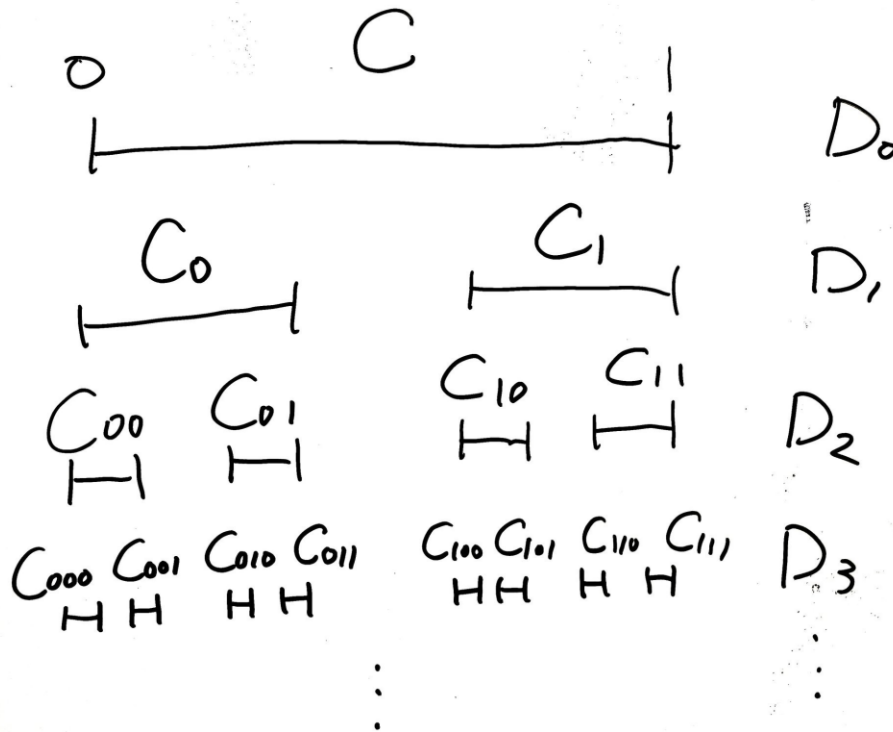 0 C 1
D₀
C₀ C₁ D₁
C₀₀ C₀₁ C₁₀ C₁₁ D₂
C₀₀₀ C₀₀₁ C₀₁₀ C₀₁₁ C₁₀₀ C₁₀₁ C₁₁₀ C₁₁₁ D₃
⋮ ⋮